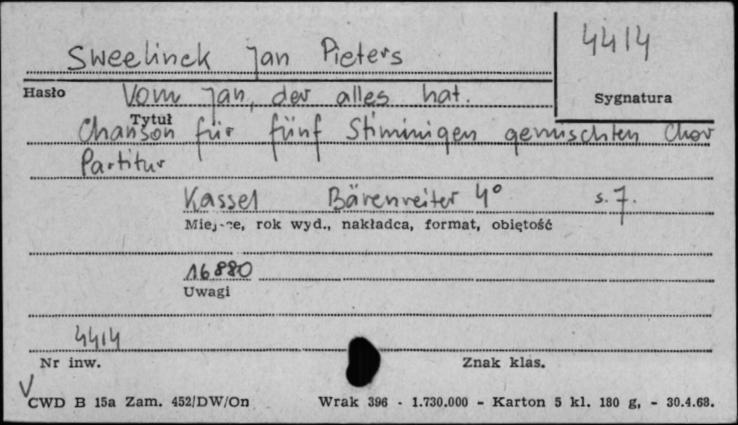 Sweelinck Jan Pieters
4414
Hasło
Vom Jan, der alles hat.
Sygnatura
Tytuł
Chanson für fünf Stiminigen gemischten Chor
Partitur
Kassel Bärenreiter 4° s. 7.
Miejsce, rok wyd., nakładca, format, objętość
16880
Uwagi
4414
Nr inw.
Znak klas.
V
CWD B 15a Zam. 452/DW/On
Wrak 396 - 1.730.000 - Karton 5 kl. 180 g, - 30.4.68.